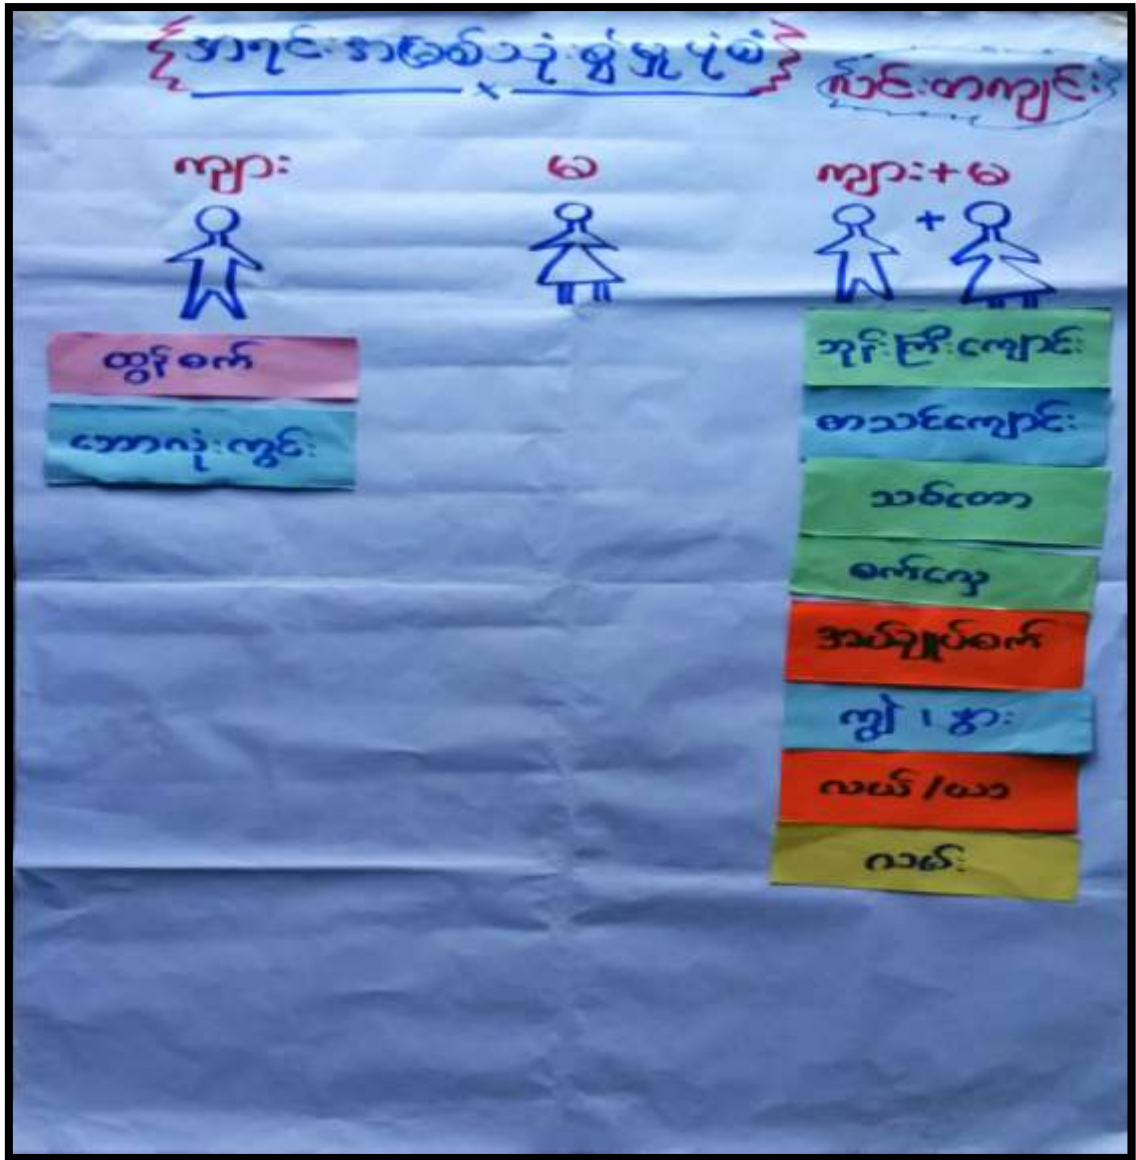 အရင်းအမြစ်သုံးစွဲမှုပုံစံ
လင်းတကျင်း
ကျား
မ
ကျား+မ
+
ထွန်စက်
ဘောလုံးကွင်း
ဘုန်းကြီးကျောင်း
စာသင်ကျောင်း
သစ်တော
စက်လှေ
အပ်ချုပ်စက်
ကျွဲ၊နွား
လယ်/ယာ
လမ်း